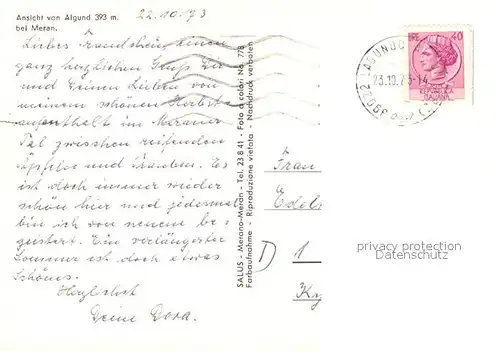 Ansicht von Algund 393 m.
bei Meran.
22.10.73
Liebes Traudchen, einen
ganz herzlichen Gruß Dir
und Deinen Lieben von
meinem schönen Herbst-
aufenthalt im Meraner
Tal zwischen reifenden
Äpfeln und Trauben. Es
ist doch immer wieder
schön hier und jedesmal
bin ich von neuem be-
geistert. Ein verlängerter
Sommer ist doch etwas
Schönes.
Herzlichst
Deine Dora.
SALUS - Merano-Meran - Tel. 23 8 41 - Foto a colori Nr. 778
Farbaufnahme - Riproduzione vietata - Nachdruck verboten
LIRE 40
REPUBBLICA
ITALIANA
39022 LAGUNDO
23.10.73-14
Frau
Edel
D 1
privacy protection
watermark